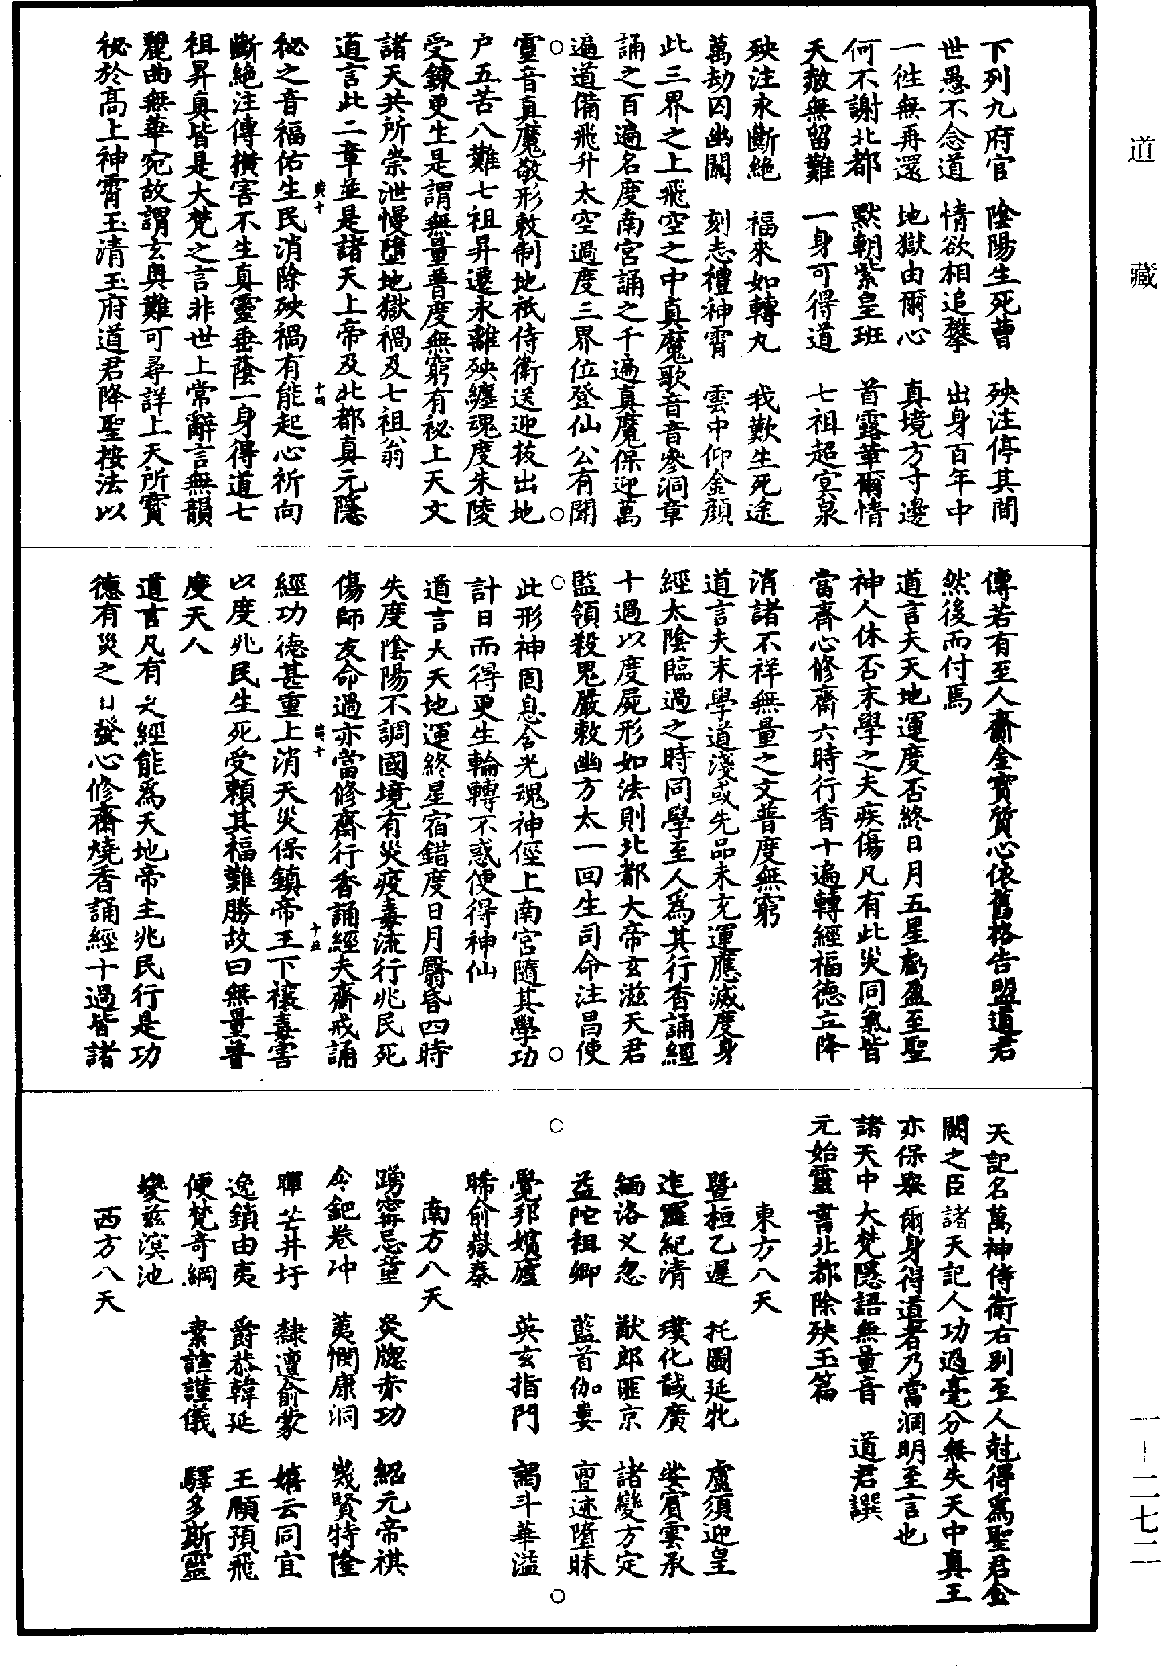 道藏
下列九府官　陰陽生死曹　殃注停其間
世愚不念道　情欲相追攀　出身百年中
一往無再還　地獄由爾心　真境方寸邊
何不謝北都　默朝紫皇班　首露華爾情
天赦無留難　一身可得道　七祖超冥泉
殃注永斷絕　福來如轉丸　我歎生死途
萬劫囚幽關　刻志禮神霄　雲中仰金顏
此三界之上飛空之中真魔歌音音參洞章
誦之百遍名度南宮誦之千遍真魔保迎萬
遍道備飛升太空過度三界位登仙公有聞
靈音真魔敬形敕制地祇侍衛送迎拔出地
户五苦八難七祖昇遷永離殃纏魂度朱陵
受鍊更生是謂無量普度無窮有祕上天文
諸天共所崇泄慢墮地獄禍及七祖翁
道言此二章並是諸天上帝及北都真元隱
祕之音福佑生民消除殃禍有能起心祈向
斷絕注傳橫害不生真靈垂蔭一身得道七
祖昇真皆是大梵之言非世上常辭言無韻
麗曲無華宛故謂玄奧難可尋詳上天所寶
祕於高上神霄玉清玉府道君降聖按法以
傳若有至人齎金寶質心依舊格告盟道君
然後而付焉
道言夫天地運度否終日月五星虧盈至聖
神人休否末學之夫疾傷凡有此災同氣皆
當齋心修齋六時行香十遍轉經福德立降
消諸不祥無量之文普度無窮
道言夫末學道淺或先品未充運應滅度身
經太陰臨過之時同學至人為其行香誦經
十過以度屍形如法則北都大帝玄滋天君
監領殺鬼嚴敕幽方太一回生司命注昌使
此形神固息含光魂神徑上南宮隨其學功
計日而得更生輪轉不惑便得神仙
道言夫天地運終星宿錯度日月翳昏四時
失度陰陽不調國境有災疫毒流行兆民死
傷師友命過亦當修齋行香誦經夫齋戒誦
經功德甚重上消天災保鎮帝王下禳毒害
以度兆民生死受賴其福難勝故曰無量普
度天人
道言凡有是經能為天地帝主兆民行是功
德有災之日發心修齋燒香誦經十過皆諸
天記名萬神侍衛右別至人尅得為聖君金
闕之臣諸天記人功過毫分無失天中真王
亦保舉爾身得道者乃當洞明至言也
諸天中大梵隱語無量音　道君譔
元始靈書北都除殃玉篇
東方八天
暨桓乙遲　托圖延牝　盧須迎皇
連羅紀清　璞化馘廣　娑賓雲承
緬洛义忽　猷郎匪京　諸變方定
益陀祖卿　藍首伽婁　亶迹墮昧
覺邦嬪廬　英玄指門　謁斗華溢
晞俞嶽秦
南方八天
踴甯忌童　炎牕赤功　紹元帝祺
令鈀卷冲　荑惘康洞　幾賢特隆
暉芒井圩　隸邅俞蒙　嬉云同宜
逸鎖由夷　爵恭韓延　王願預飛
便梵奇綱　素謹儀　驛多斯靈
變茲溟池
西方八天
一—二七二